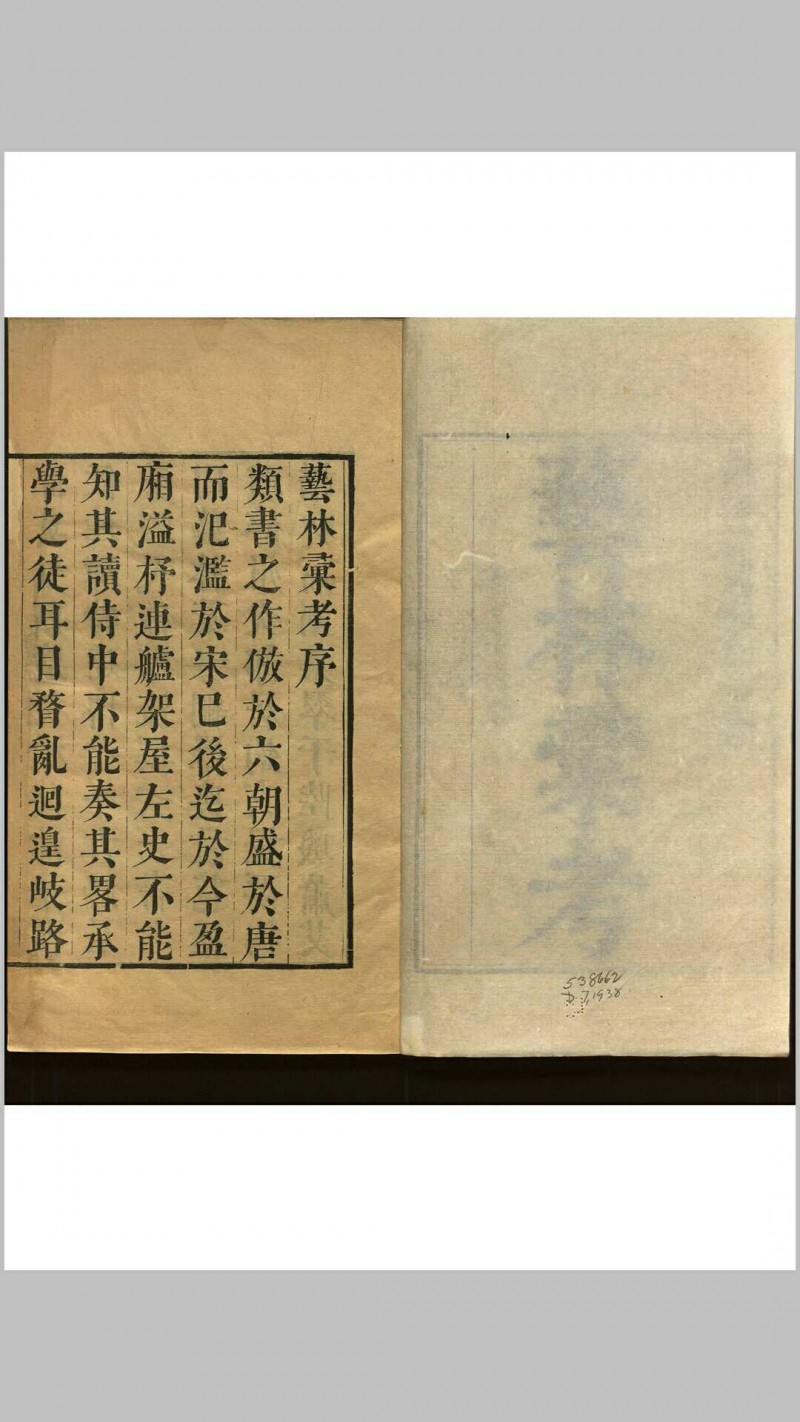 藝林彚考序
類書之作倣於六朝盛於唐
而汜濫於宋已後迄於今盈
廂溢杼連艫架屋左史不能
知其讀侍中不能奏其畧承
學之徒耳目瞀亂迴遑岐路
藝林彚考
538662